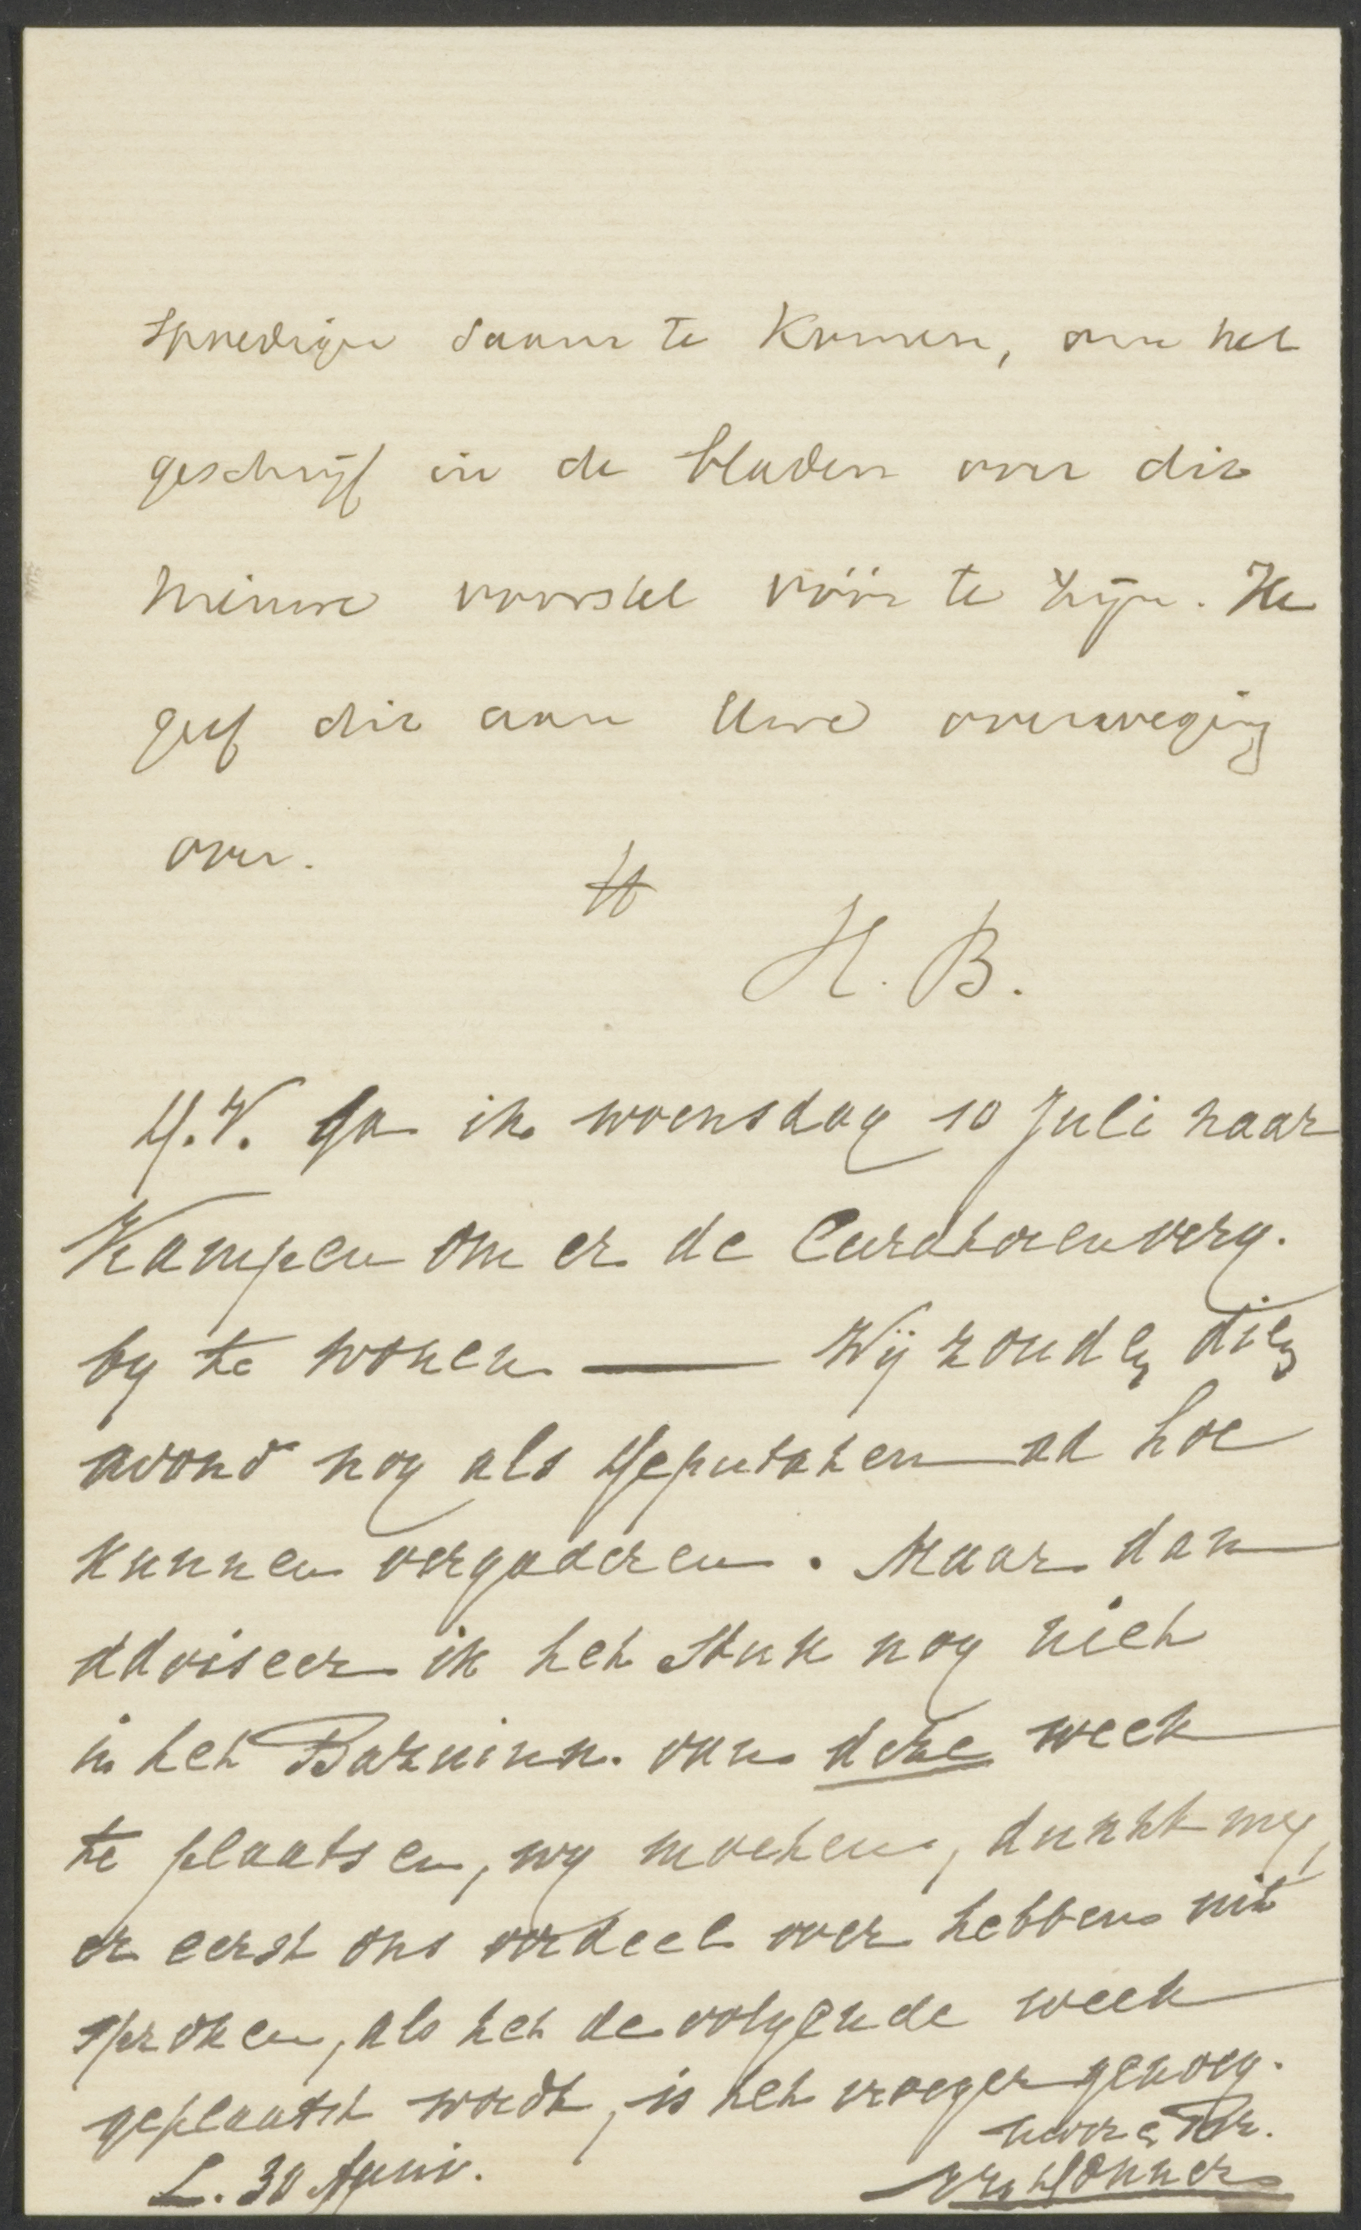 spoediger saam te komen, om het
geschrijf in de bladen over dit
nieuwe voorstel vóór te zijn. Ik
geef dit aan Uwe overweging
over.
H. B.
D.V. ga ik woensdag 10 Juli naar
Kampen om er de Curatorenverg.
by te wonen — Wij zouden dien
avond nog als Deputaten ad hoc
kunnen vergaderen. Maar dan
adviseer ik het stuk nog niet
in het Bazuinn. van deze week
te plaatsen, wy moeten, dunkt my,
er eerst ons oordeel over hebben uit
sproken, als het de volgende week
geplaatst wordt, is het vroeger genoeg.
L. 30 Juni.
Donner